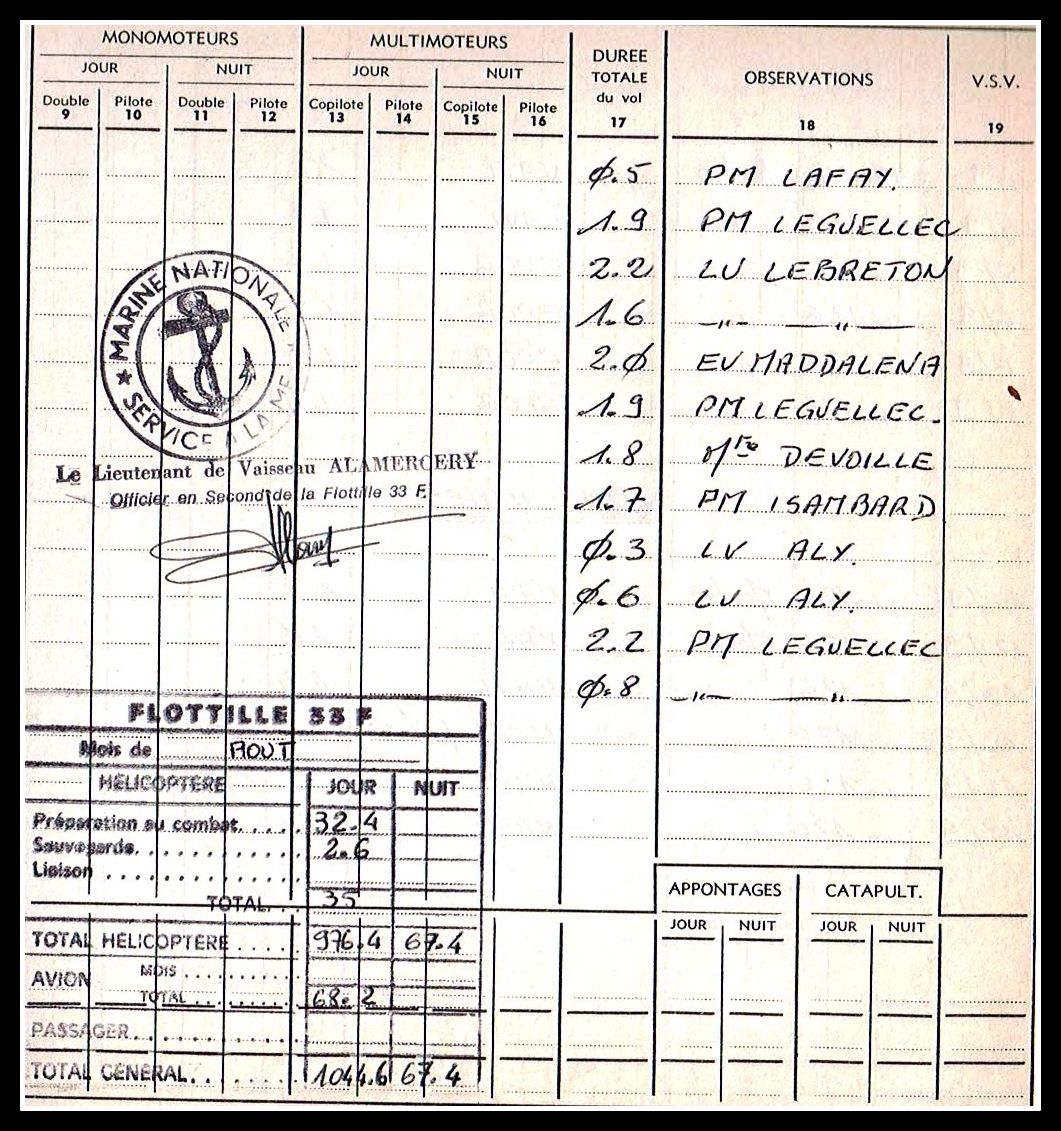 MONOMOTEURS MULTIMOTEURS DUREE TOTALE du vol OBSERVATIONS V.S.V.
JOUR NUIT JOUR NUIT
Double Pilote Double Pilote Copilote Pilote Copilote Pilote
9 10 11 12 13 14 15 16 17 18 19
Ø.5 PM LAFAY.
1.9 PM LEGUELLEC
2.2 LV LEBRETON
1.6 —"— —"—
2.Ø EV MADDALENA
1.9 PM LEGUELLEC.
1.8 DEVOILLE
1.7 PM ISAMBARD
Ø.3 LV ALY.
Ø.6 LV ALY.
2.2 PM LEGUELLEC
Ø.8 —"— —"—
★ MARINE NATIONALE
SERVICE A LA MER
Le Lieutenant de Vaisseau ALAMERCERY
Officier en Second de la Flottille 33 F.
FLOTTILLE 33 F
Mois de AOUT
HÉLICOPTÈRE JOUR NUIT
Préparation au combat..... 32.4
Sauvegarde............ 2.6
Liaison ..............
TOTAL... 35
TOTAL HÉLICOPTÈRE..... 976.4 67.4
AVION MOIS .........
TOTAL ......... 68.2
PASSAGER............
TOTAL GÉNÉRAL....... 1044.6 67.4
APPONTAGES CATAPULT.
JOUR NUIT JOUR NUIT